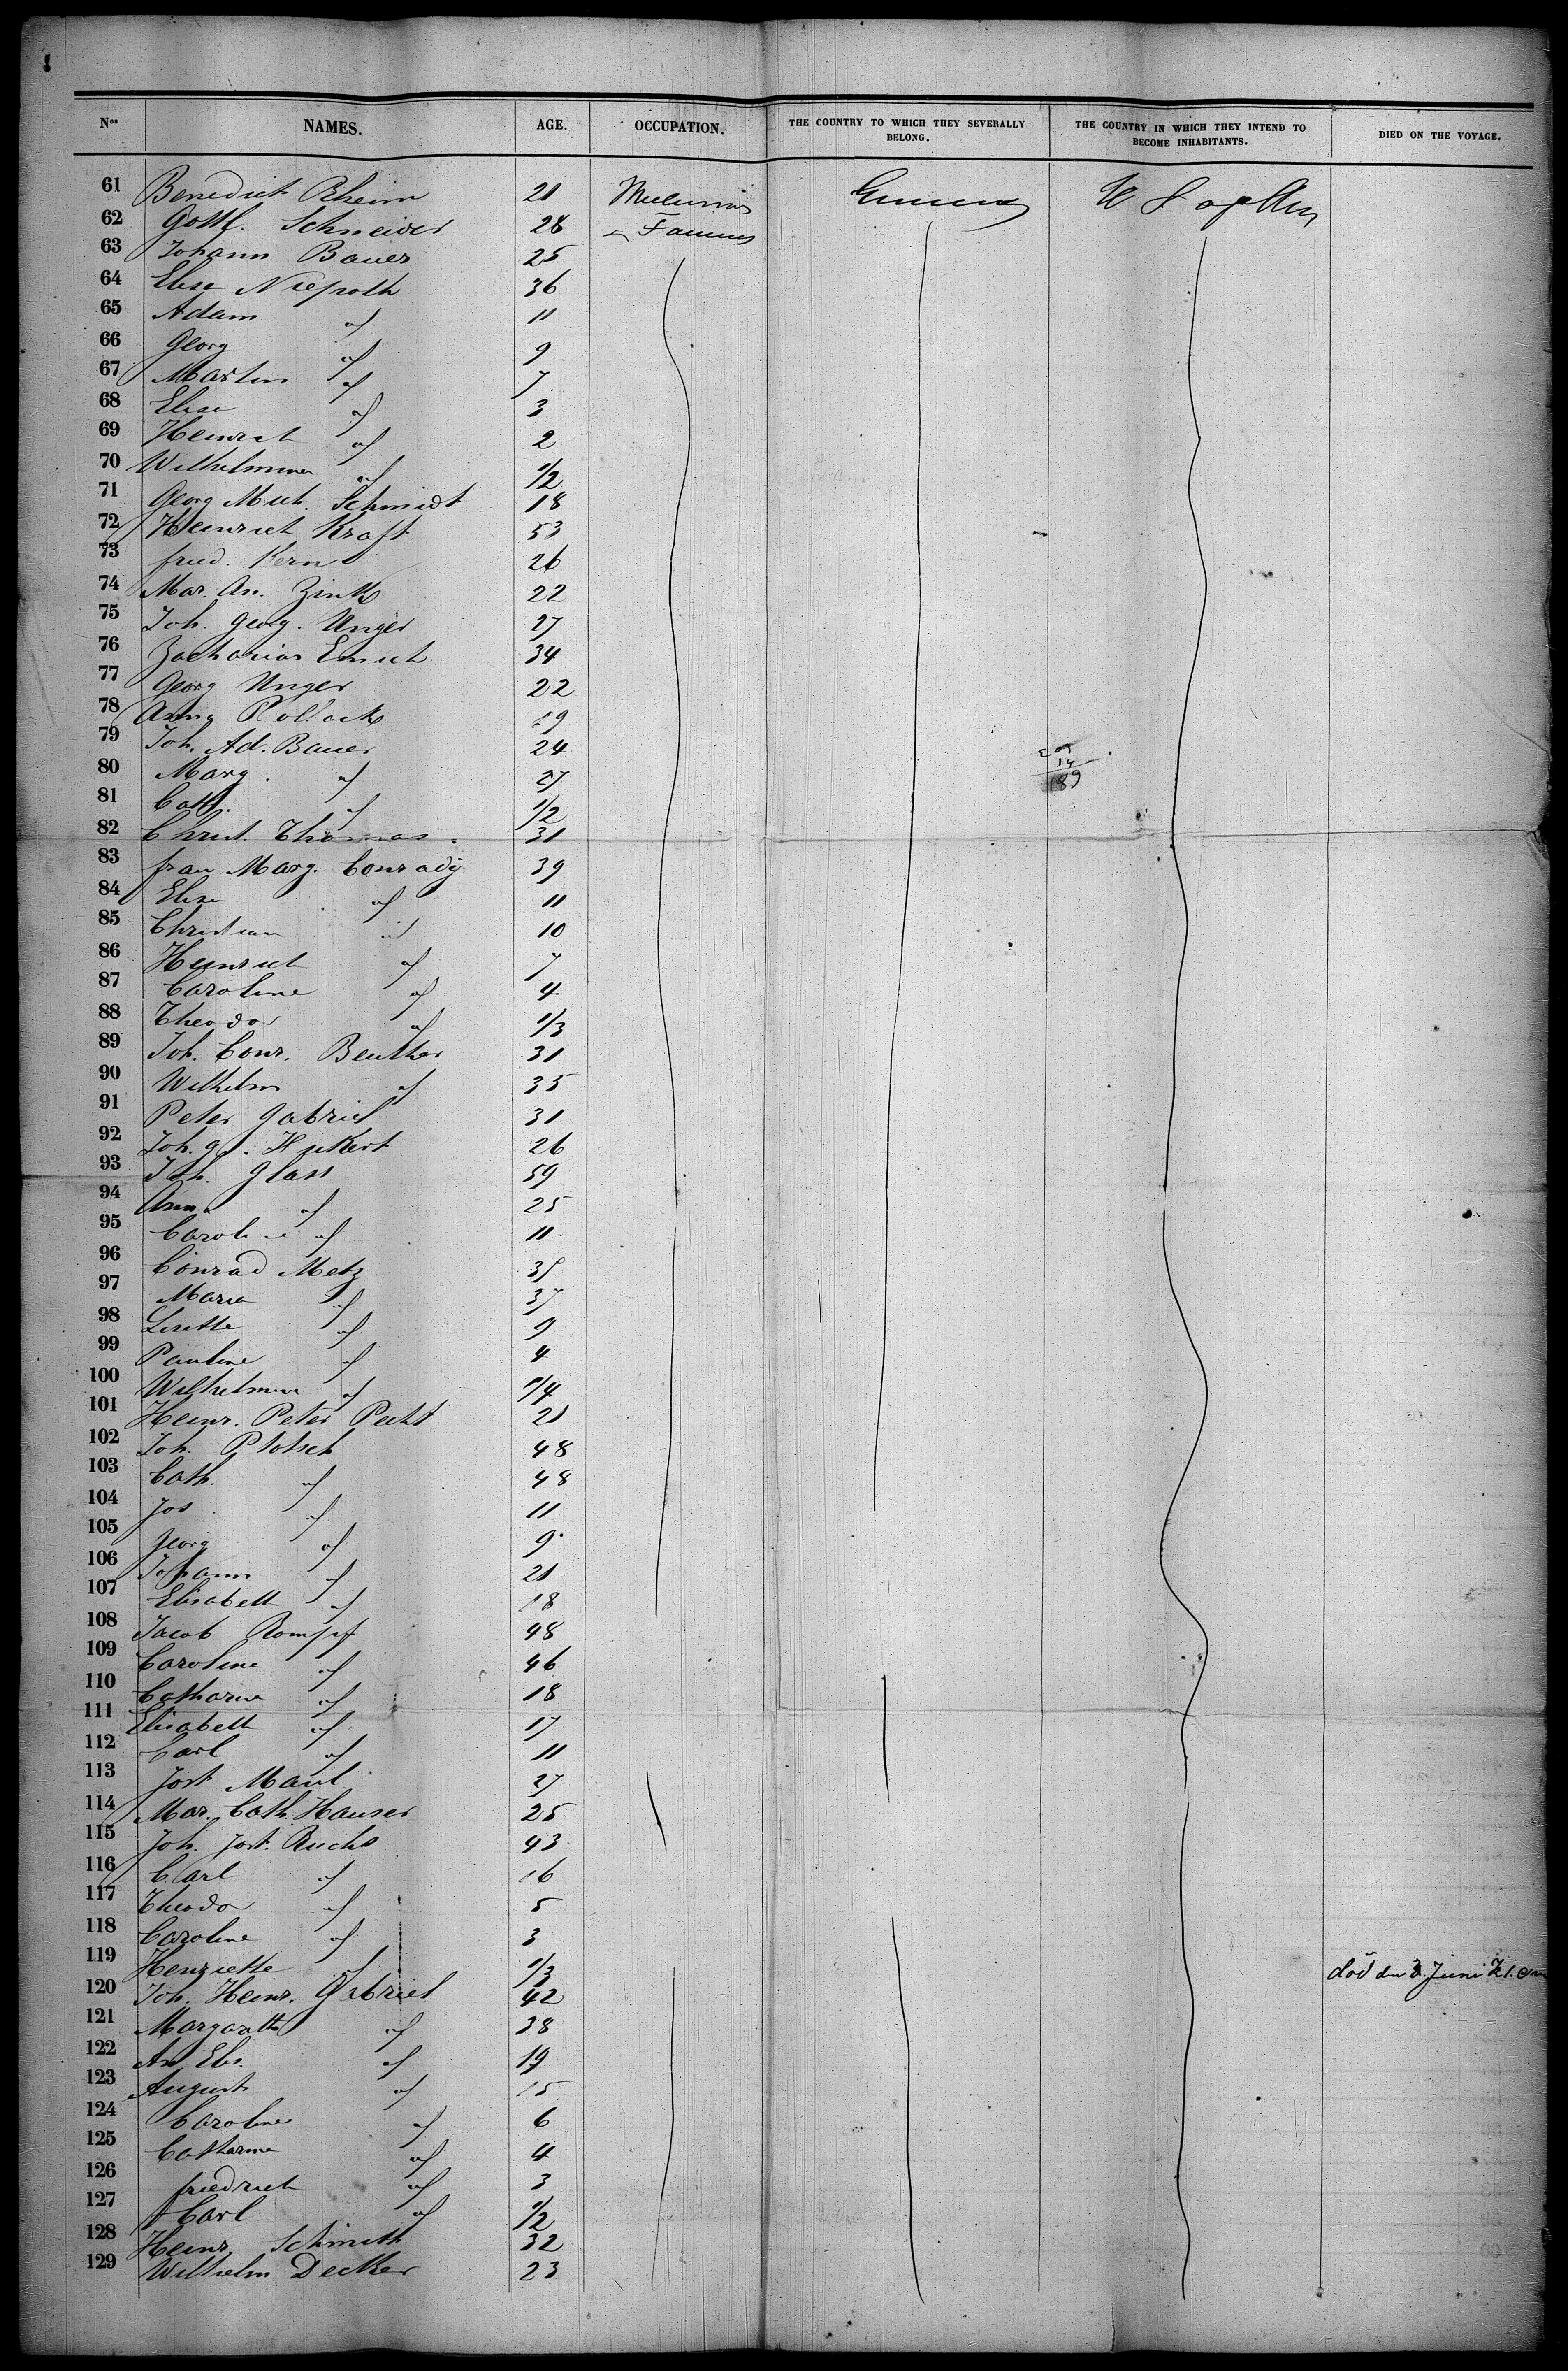 Nos NAMES. AGE. OCCUPATION. THE COUNTRY TO WHICH THEY SEVERALLY BELONG. THE COUNTRY IN WHICH THEY INTEND TO BECOME INHABITANTS. DIED ON THE VOYAGE.
61 Benedict Rheim 21 Germany U S of
62 Gottf. Schneider 28 Farmers
63 Johann Bauer 25
64 Elise 36
65 Adam " 11
66 Georg " 9
67 Martin " 7
68 Elise " 3
69 Heinrich " 2
70 Wilhelmine " 1/2
71 Georg Mich. Schmidt 18
72 Heinrich Kraft 53
73 fried. Kern 26
74 Mar. An. Zink 22
75 Joh. Georg. Unger 27
76 Zacharias Emich 34
77 Georg Unger 22
78 Anna Pollack 19
79 Joh. Ad. Bauer 24
80 Marg. " 27
81 Cath. " 1/2
82 Christ. Thomas 31
83 frau Marg. Conrady 39
84 Elise " 11
85 Christian " 10
86 Heinrich " 7
87 Caroline " 4
88 Theodor " 1/3
89 Joh. Conr. Beuther 31
90 Wilhelm " 35
91 Peter Gabriel 31
92 Joh. 26
93 Joh. Glass 59
94 Anna " 25
95 Caroline " 11
96 Conrad Metz
97 Marie " 37
98 Lisette " 9
99 Pauline " 4
100 Wilhelmine " 1/4
101 Heinr. Peter 21
102 Joh. Plotsch 48
103 Cath. " 48
104 Jos " 11
105 Georg " 9
106 Johann " 21
107 Elisabeth " 18
108 Jacob Rompf 48
109 Caroline " 46
110 Catharine " 18
111 Elisabeth " 17
112 Carl " 11
113 Jost Maul 27
114 Mar. Cath. Hauser 25
115 Joh. Jost. Ruchs 43
116 Carl " 16
117 Theodor " 5
118 Caroline " 3
119 Henriette " 1/3 död den 3. Juni
120 Joh. Heinr. Gabriel 42
121 Margareth " 38
122 An Elis. " 19
123 August " 15
124 Caroline " 6
125 Catharine " 4
126 friedrich " 3
127 Carl " 1/2
128 Heinr. Schmith 32
129 Wilhelm Decker 23